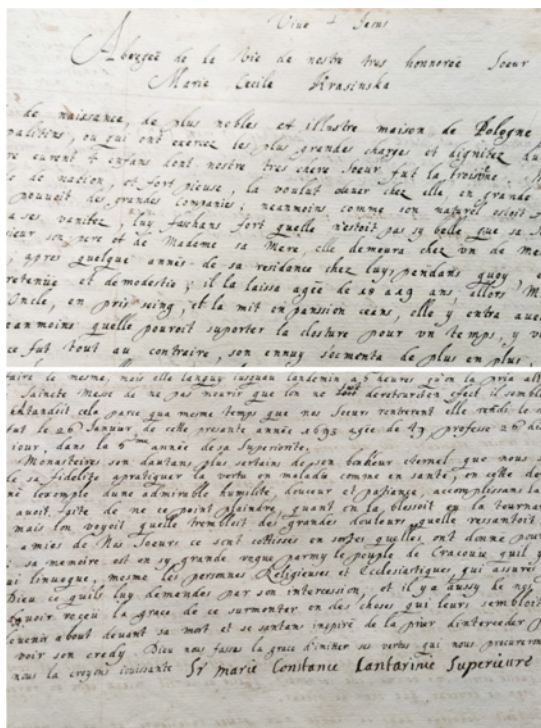 Vive + Jesus
Abregeé de la Vie de nostre tres honnoreé Soeur
Marie Cecile Krasinska
de naissance, de plus nobles et illustre maison de Pologne
palatins, ou qui ont exercez les plus grandes charges et dignitez du
re eurent 4 enfans dont nostre tres chere Soeur fut la troisme.
de nation, et fort pieuse, la voulut elever chez elle, en grande
pouvoit des grandes companies; neanmoins comme son naturel estoit
a ses vanitez, luy faschans fort quelle n'estoit pas sy belle que sa
sieur son pere et de Madame sa Mere, elle demeura chez vn de
apres quelque anneés de sa residance chez luy, pendans quoy
retenüe et demodestie; il la laissa ageé de 18 a 19 ans, allors
Oncle, en pris seing, et la mit en panssion ceans, elle y entra
neanmoins quelle pouroit suporter la closture pour vn temps, y
ce fut tout au contraire, son ennuy socmenta de plus en plus,
faire le mesme, mais elle languy jusquau landemin a 5 heures qu'on la pria
Saincte Messe de ne pas mourir que lon ne fut deretour, en efect il
entandoit cela parce qua mesme temps que nos Soeurs rentrerent elle rendi
fut le 26 Januier de cette presente anneé 1693 ageé de 43 professe 26
iour, dans la 5me anneé de sa Superiorité.
Monasteires son dautans plus sertains de son bonheur eternel que nous
de sa fidelite apratiquer la vertu en maladie comme en sante, en
ne lexemple dune admirable humilité, douceur et patiance, accomplissans
auoit faite de ne ce point plaindre, quant on la blessoit en la
mais lon voyoit quelle trembloit des grandes douleurs quelle ressantoit
amies de Nos Soeurs ce sont cottiseés en sortes quelles ont donné
sa memoire est en sy grande vogue parmy le peuple de Cracouie quil
qui linuoque, mesme les personnes Religieuses et Ecclesiastiques, qui
Dieu ce quils luy demandes par son intercession, et il y a aussy de
auoir receü la grace de ce surmonter en des choses qui leurs sembloit
venir about deuant sa mort et se sentans inspiré de la prier d'interceder
voir son credy. Dieu nous fassa la grace d'imiter ses vertus qui nous
nous la croyons iouissante Sr marie Constance Lantarinie Superieure